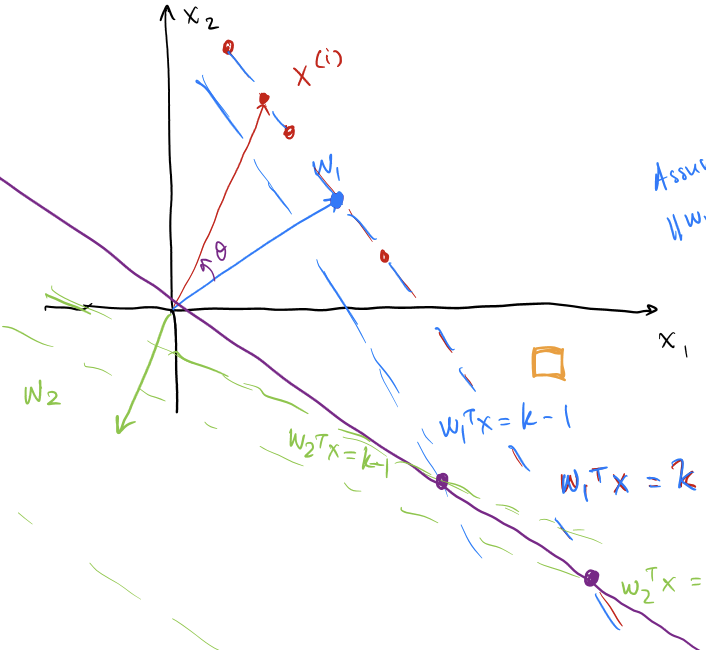 x₂
x⁽ⁱ⁾
w₁
θ
x₁
w₂
w₁ᵀx = k-1
w₂ᵀx = k-1
w₁ᵀx = k
w₂ᵀx =